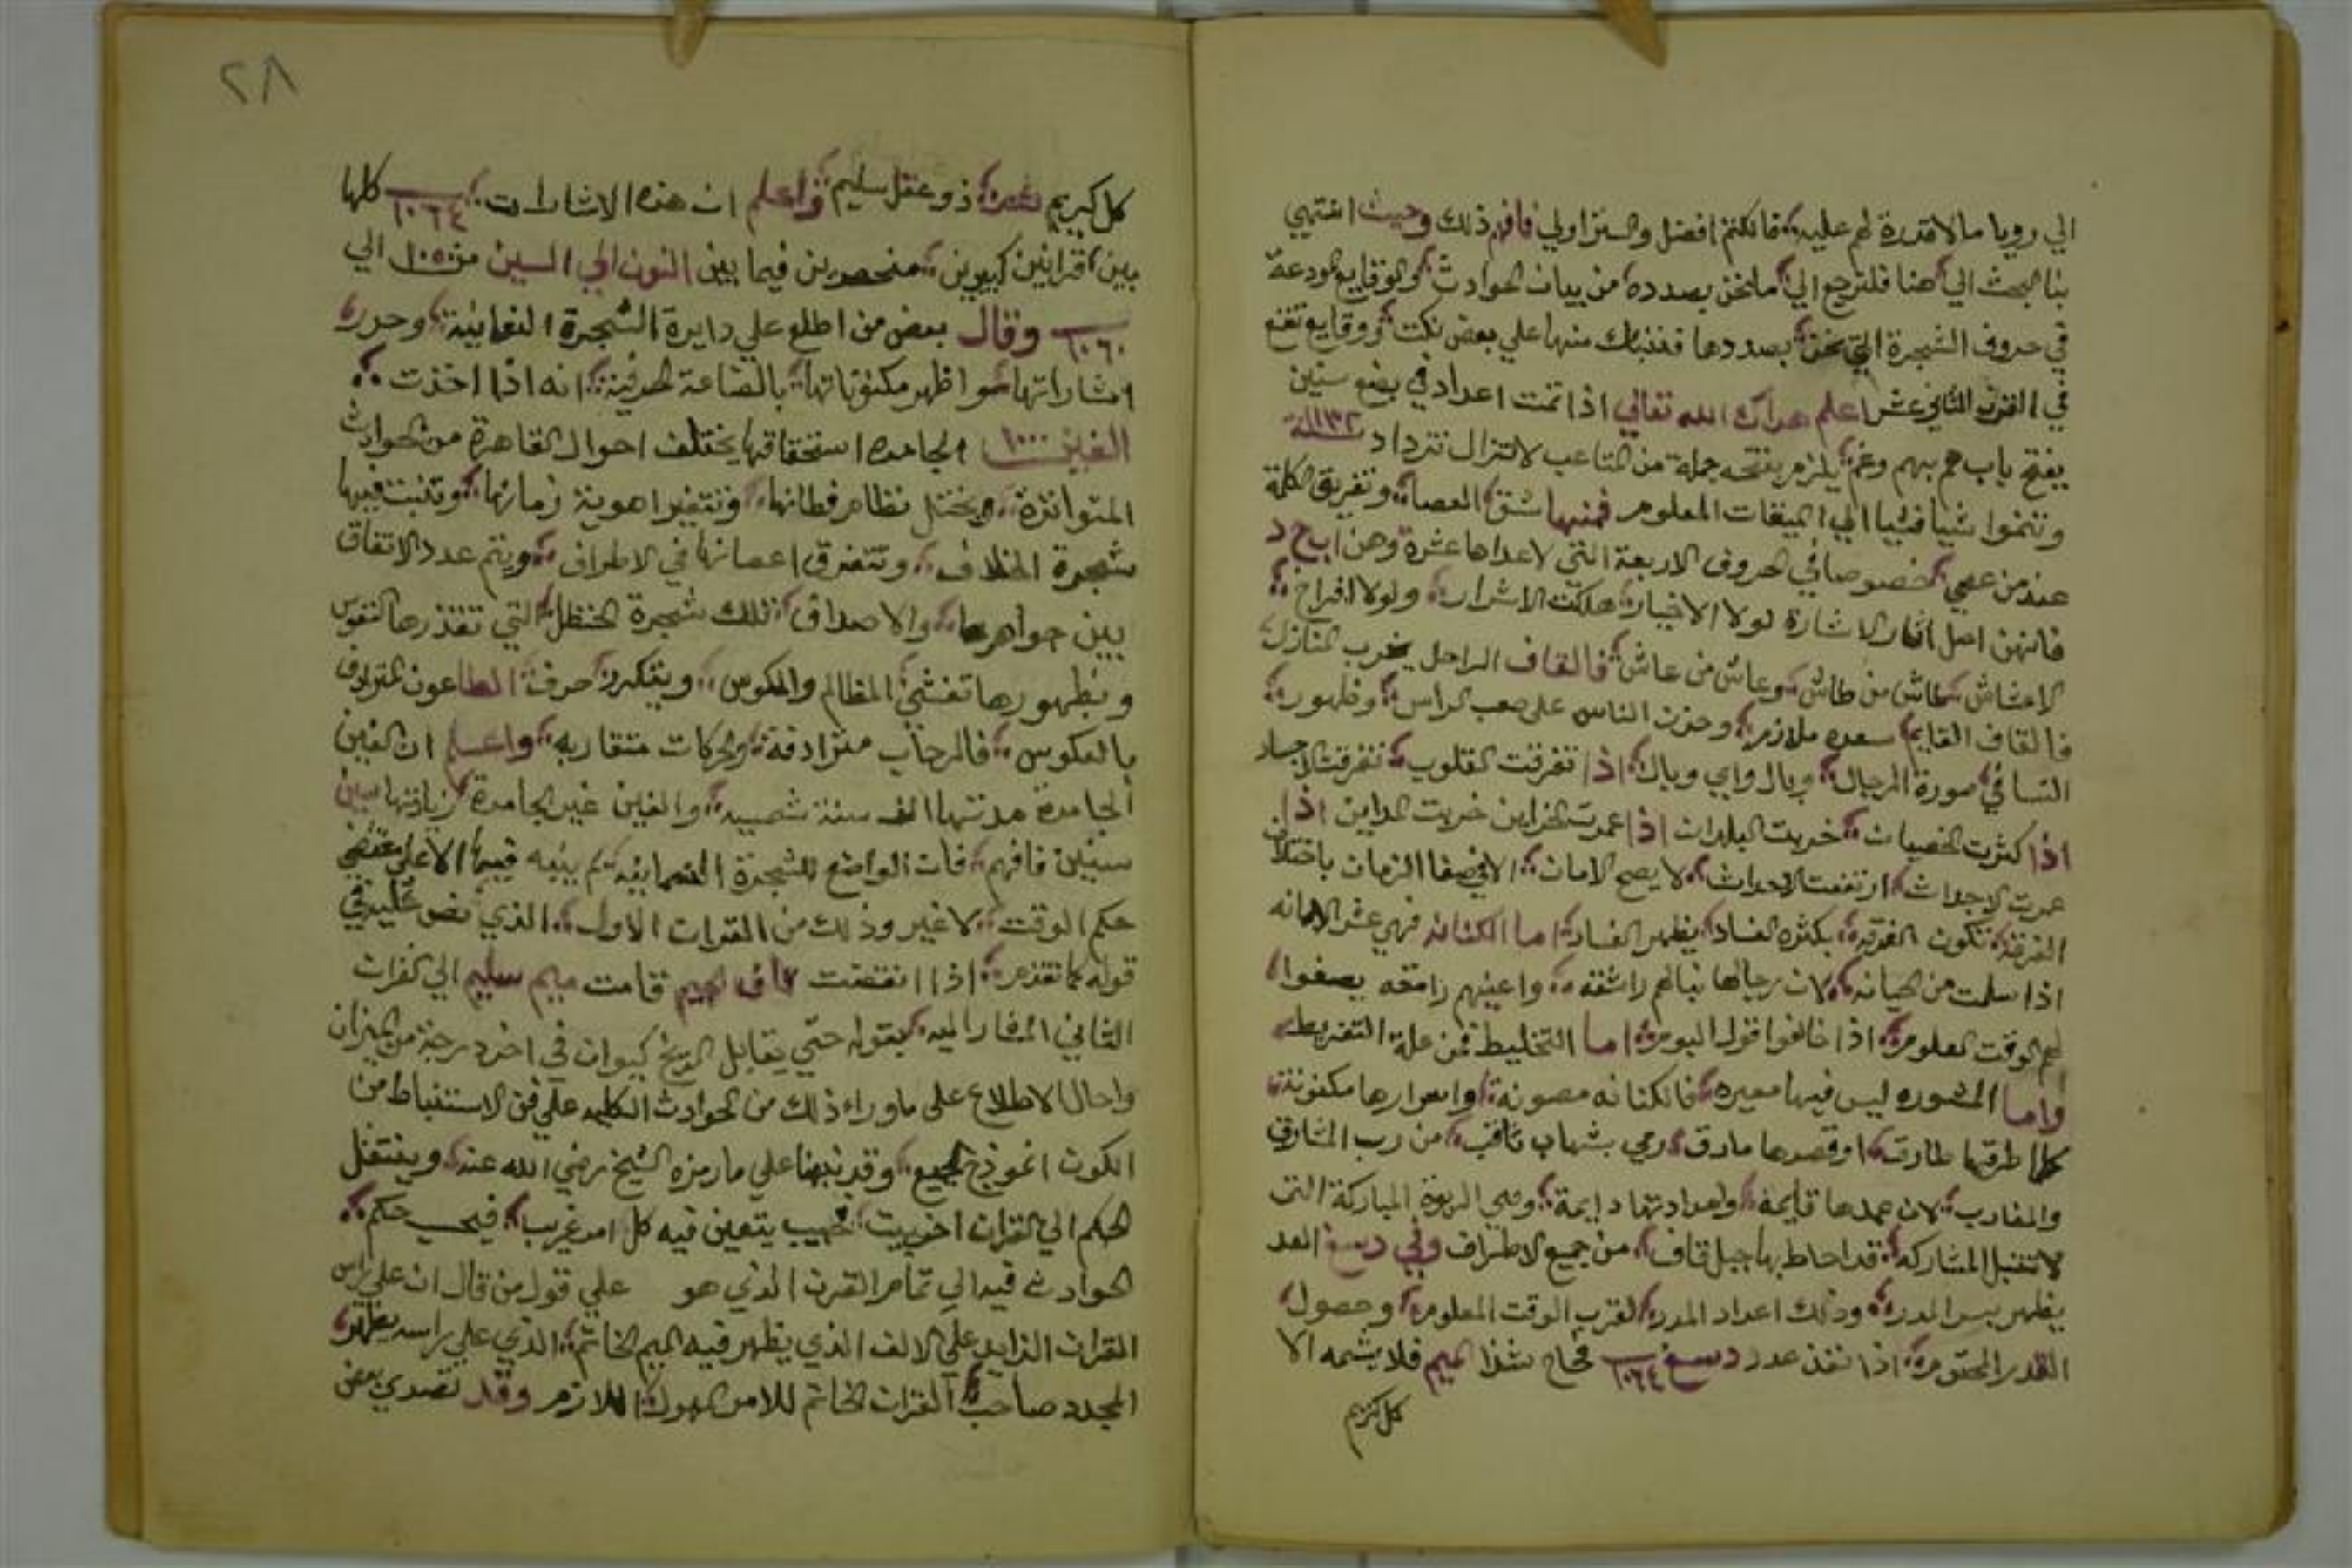 الي رويا ما لا قدرة لهم عليه فالكتم افضل والستر اولي فافهم ذلك وحيث انتهي
بنا البحث الي هنا فلنرجع الي ما نحن بصدده من بيان الحوادث والوقايع المودعة
في حروف الشجرة التي نحن بصددها فننبك منها علي بعض نكت ووقايع تقع
في القرن الثاني عشر اعلم هداك الله تعالي اذا تمت اعداد في بضع سنين
يفتح باب هم بهم وغم يلزم بفتحه جملة من المتاعب لا تزال تزداد سنة ١١٣٢
وتنموا شيا فشيا الي الميقات المعلوم فمنها شق العصا وتفريق الكلمة
عند من عمي خصوصا في الحروف الاربعة التي لاعدادها عشرة وهن اب ج د
فانهن اصل اثار الاشارة لولا الاخيار هلكت الاشرار ولولا افراخ
الاعشاش طاش من طاش وعاش من عاش فالقاف الراحل يخرب المنازل
فالقاف القايم سعده ملازم وحزن الناس علي صعب الراس وظهور
النسا في صورة الرجال وبال واي وبال اذا تفرقت القلوب تفرقت الاجساد
اذا كثرت الخصيان خربت البلدان اذا عمرت الخزاين خربت المداين اذا
عمرت الاجداث ارتفعت الاحداث لا يصح الامان الا في صفا الزمان باختلاف
الفرقة تكون الفرقة بكثرة الفساد يظهر الفساد اما الكنانه فهي عش الامانه
اذا سلمت من الخيانه لان رجالها نبالهم راشقه واعينهم رامقه يصفوا
لهم الوقت المعلوم اذا خالفوا قول البوم اما التخليط فمن علة التفريط
واما المشوره ليس فيها معيره فالكنانه مصونة واسرارها مكنونة
كلما طرقها طارق او قصدها مارق رمي بشهاب ثاقب من رب المشارق
والمغارب لان عمدها قايمة وامدادتها دايمة وهي الربوة المباركة التي
لا تقبل المشاركه قد احاط بها جبل قاف من جميع الاطراف وفي دسغ العد
يظهر سر المدد وذلك اعداد المدد لقرب الوقت المعلوم وحصول
القدر المحتوم اذا نفذ عدد دسغ ١٠٦٤ فاح شذا الميم فلا يشمه الا
كل كريم
٢٨
كل كريم ذو عقل سليم واعلم ان هذه الاشارات ١٠٦٤ كلها
بين قرانين كبيرين منحصرين فيما بين النون الي السين من ١٠٥٠ الي
١٠٦٠ وقال بعض من اطلع علي دايرة الشجرة النعمانية وحرر
اشاراتها واظهر مكنوناتها بالصناعة الحرفية انه اذا اخذت
الغين ١٠٠٠ الجامده استحقاقها يختلف احوال القاهرة من الحوادث
المتواترة ويختل نظام قطانها وتتغير اهوية زمانها وتنبت فيها
شجرة الخلاف وتتفرق اعصانها في الاطراف ويتم عدد الاتفاق
بين جواهرها والاصداف تلك شجرة الحنظل التي تقذرها النفوس
وبظهورها تفشي المظالم والمكوس ويتكرر حرف الطاعون المترادف
بالعكوس فالرحاب مترادفة والحركات متقاربه واعلم ان الغين
الجامدة مدتها الف سنة شمسيه والغين غير الجامدة زيادتها
سنين فافهم فان الواضع للشجرة النعمانيه لم يبنيه فيها الا علي مقتضي
حكم الوقت لا غير وذلك من القران الاول الذي نص عليه في
قوله كما تقدم اذا انقضت قاف الجيم قامت ميم سليم الي القران
الثاني المشار اليه بقوله حتي يقابل المريخ كيوان في اخر درجة من الميزان
واحال الاطلاع علي ما وراء ذلك من الحوادث الكليه علي فن الاستنباط من
الكون انموذج الجميع وقد نبهنا علي ما رمزه الشيخ رضي الله عنه وينتقل
الحكم الي القران اخر بيت بحيب يتعين فيه كل امر غريب فيحسب حكم
الحوادث فيه الي تمام القرن الذي هو علي قول من قال ان علي راس
القران الزايد علي الالف الذي يظهر فيه الميم الخاتم الذي علي راسه يظهر
المجدد صاحب القران الخاتم للامر المهول اللازم وقد تصدي بعض